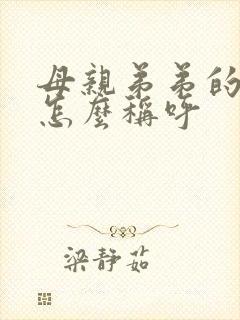 母親弟弟的
怎麼稱呼
梁靜茹